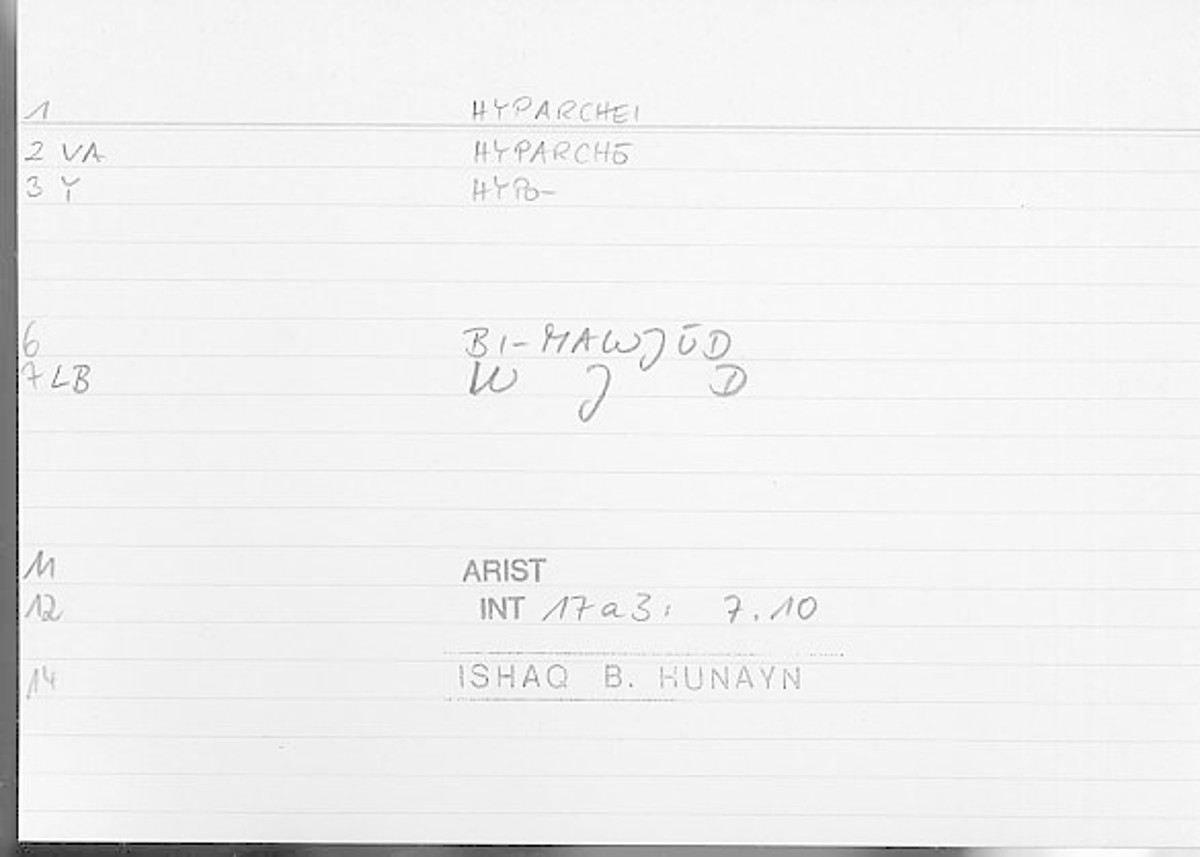 1 HYPARCHEI
2 VA HYPARCHŌ
3 Y HYPO-
6 BI-MAWJŪD
7 LB W J D
11 ARIST
12 INT 17a3; 7.10
14 ISHAQ B. HUNAYN